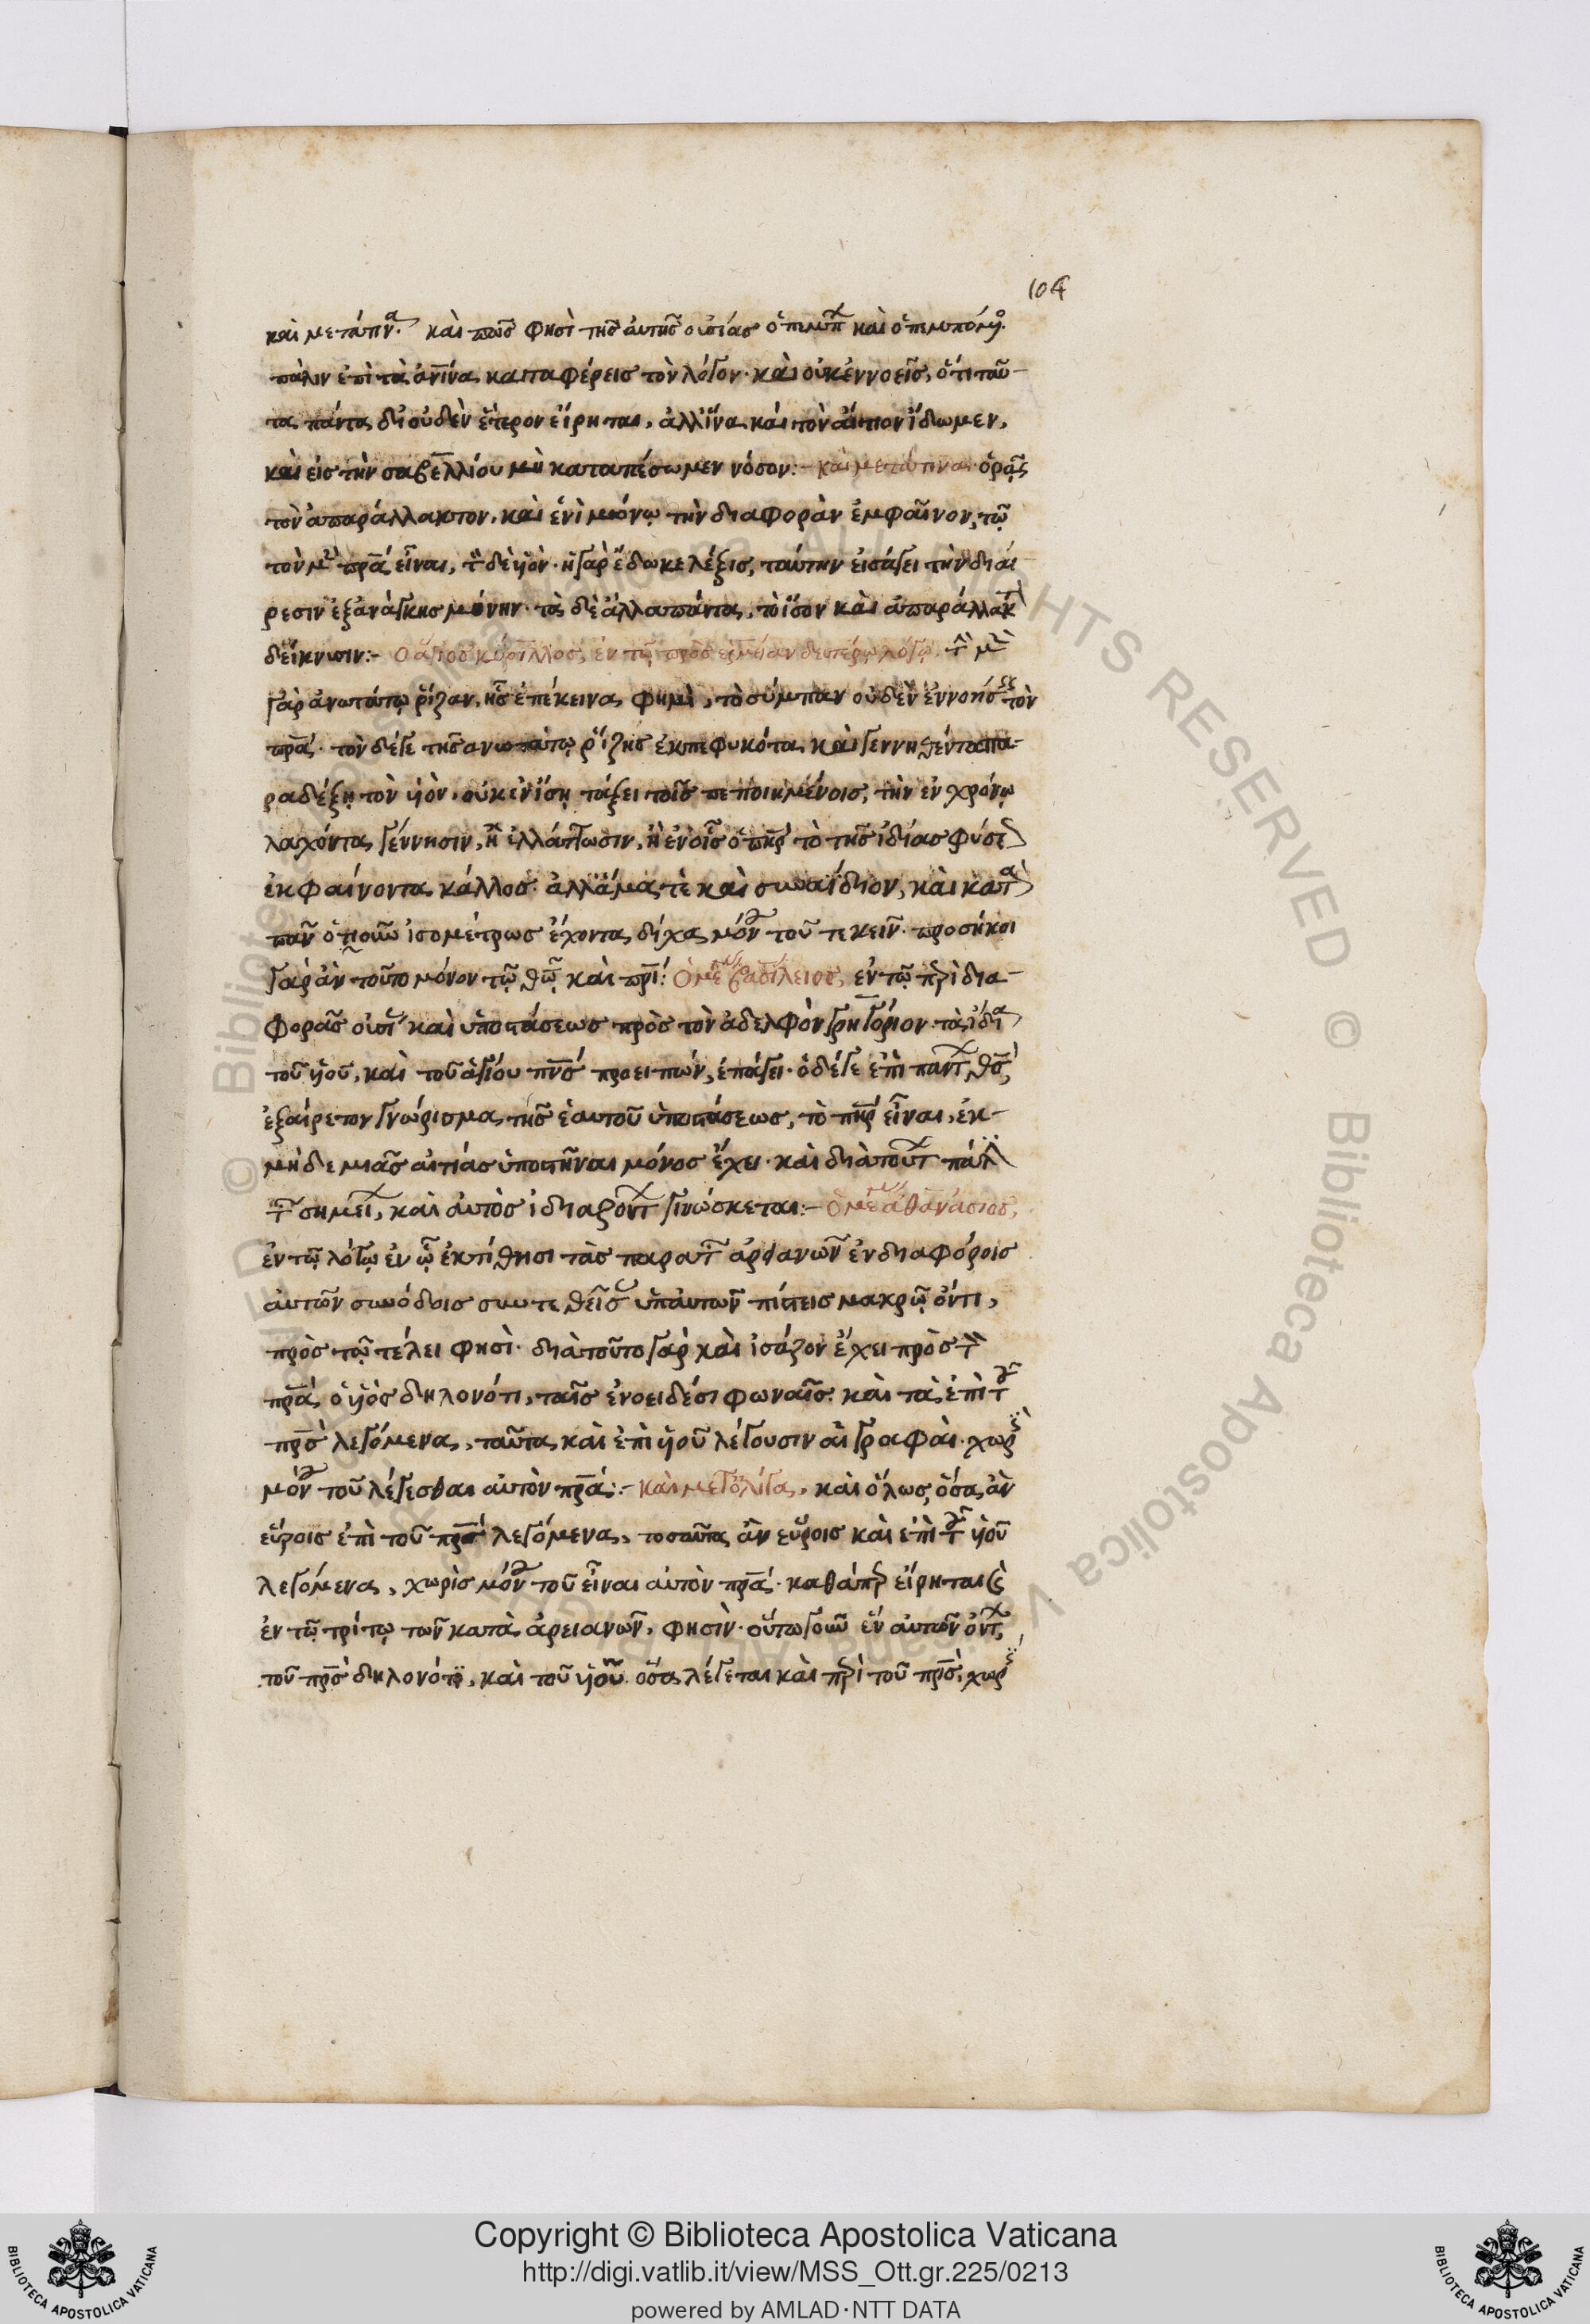 104
καὶ μετάτινα. καὶ πῶς φησὶ τῆς αὐτῆς οὐσίας ὁ πέμπων καὶ ὁ πεμπόμενος.
πάλιν ἐπὶ τὰ ἀνθρώπινα καταφέρεις τὸν λόγον· καὶ οὐκ ἐννοεῖς, ὅτι ταῦ-
τα πάντα δι' οὐδὲν ἕτερον εἴρηται, ἀλλ' ἵνα καὶ τὸν αἴτιον ἴδωμεν,
καὶ εἰς τὴν σαβελλίου μὴ καταπέσωμεν νόσον:- καὶ μετάτινα· ὁρᾷς
τὸν ἀπαράλλακτον, καὶ ἑνὶ μόνῳ τὴν διαφορὰν ἐμφαῖνον, τῷ
τὸν μὲν πρά εἶναι, τὸν δὲ υἱόν· ἡ γὰρ ἔδωκε λέξις, ταύτην εἰσάγει τὴν διαί
ρεσιν ἐξ ἀνάγκης μόνην· τὰ δὲ ἄλλα πάντα, τὸ ἴσον καὶ ἀπαράλλακτον
δείκνυσιν:- Ὁ ἅγιος κύριλλος, ἐν τῷ πρὸς ἑρμείαν δευτέρῳ λόγῳ. τὴν μὲν
γὰρ ἀνωτάτω ῥίζαν, ἧς ἐπέκεινα φημὶ, τὸ σύμπαν οὐδὲν ἐννοήσεις τὸν
πρά· τὸν δέ γε τῆς ἀνωτάτω ῥίζης ἐκπεφυκότα καὶ γεννηθέντα πα-
ραδέξῃ τὸν υἱὸν, οὐκ ἐν ἴσῃ τάξει τοῖς πεποιημένοις, τὴν ἐν χρόνῳ
λαχόντα γέννησιν, ἢ ἐλλάττωσιν, ἢ ἐν οἷς ὁ πηρ τὸ τῆς ἰδίας φύσεως
ἐκφαίνοντα κάλλος· ἀλλ' ἅμα τὲ καὶ συναΐδιον, καὶ κατὰ
πᾶν ὁτιοῦν ἰσομέτρως ἔχοντα δίχα μόνου τοῦ τεκεῖν· προσήκοι
γὰρ ἂν τοῦτο μόνον τῷ θῷ καὶ πρι: Ὁ μέγας βασίλειος, ἐν τῷ περὶ δια-
φορᾶς οὐσίας καὶ ὑποστάσεως πρὸς τὸν ἀδελφὸν γρηγόριον· τὰ ἴδια
τοῦ υἱοῦ, καὶ τοῦ ἁγίου πνς προειπών, ἐπάγει· ὁ δέ γε ἐπὶ πάντων θς,
ἐξαίρετον γνώρισμα τῆς ἑαυτοῦ ὑποστάσεως, τὸ πηρ εἶναι, ἐκ-
μὴδεμιᾶς αἰτίας ὑποστῆναι μόνος ἔχει· καὶ διὰ τούτων πάλιν
τῶν σημείων, καὶ αὐτὸς ἰδιαζόντως γινώσκεται:- Ὁ μέγας ἀθανάσιος,
ἐν τῷ λόγῳ ἐν ᾧ ἐκτίθησι τὰς παρὰ τῶν ἀρειανῶν ἐν διαφόροις
αὐτῶν συνόδοις συντεθείσας ὑπ' αὐτῶν πίστεις μακρῷ ὄντι,
πρὸς τῷ τέλει φησὶ· διὰ τοῦτο γὰρ καὶ ἰσάζον ἔχει πρὸς τὸν
πρά, ὁ υἱὸς δηλονότι, ταῖς ἑνοειδέσι φωναῖς. καὶ τὰ ἐπὶ τοῦ
πρς λεγόμενα, ταῦτα καὶ ἐπὶ υἱοῦ λέγουσιν αἱ γραφαὶ· χωρὶς
μόνου τοῦ λέγεσθαι αὐτὸν πρά:- καὶ μετ' ὀλίγα, καὶ ὅλως, ὅσα ἂν
εὕροις ἐπὶ τοῦ πρς λεγόμενα, τοσαῦτα ἂν εὕροις καὶ ἐπὶ τοῦ υἱοῦ
λεγόμενα, χωρὶς μόνου τοῦ εἶναι αὐτὸν πρά· καθάπερ εἴρηται καὶ
ἐν τῷ τρίτῳ τῶν κατὰ ἀρειανῶν, φησὶν· οὕτω γοῦν ἓν αὐτῶν ὄντων,
τοῦ πρς δηλονότι, καὶ τοῦ υἱοῦ. ὅσα λέγεται καὶ περὶ τοῦ πρς, χωρὶς
Copyright © Biblioteca Apostolica Vaticana
http://digi.vatlib.it/view/MSS_Ott.gr.225/0213
powered by AMLAD·NTT DATA